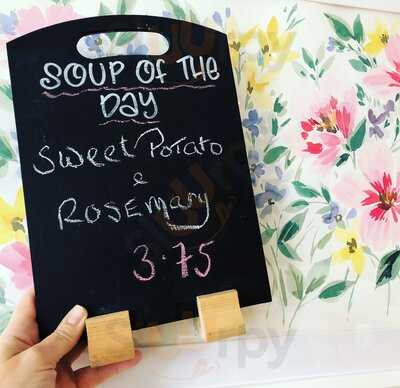 SOUP OF THE
DAY
Sweet Potato
&
Rosemary
3.75